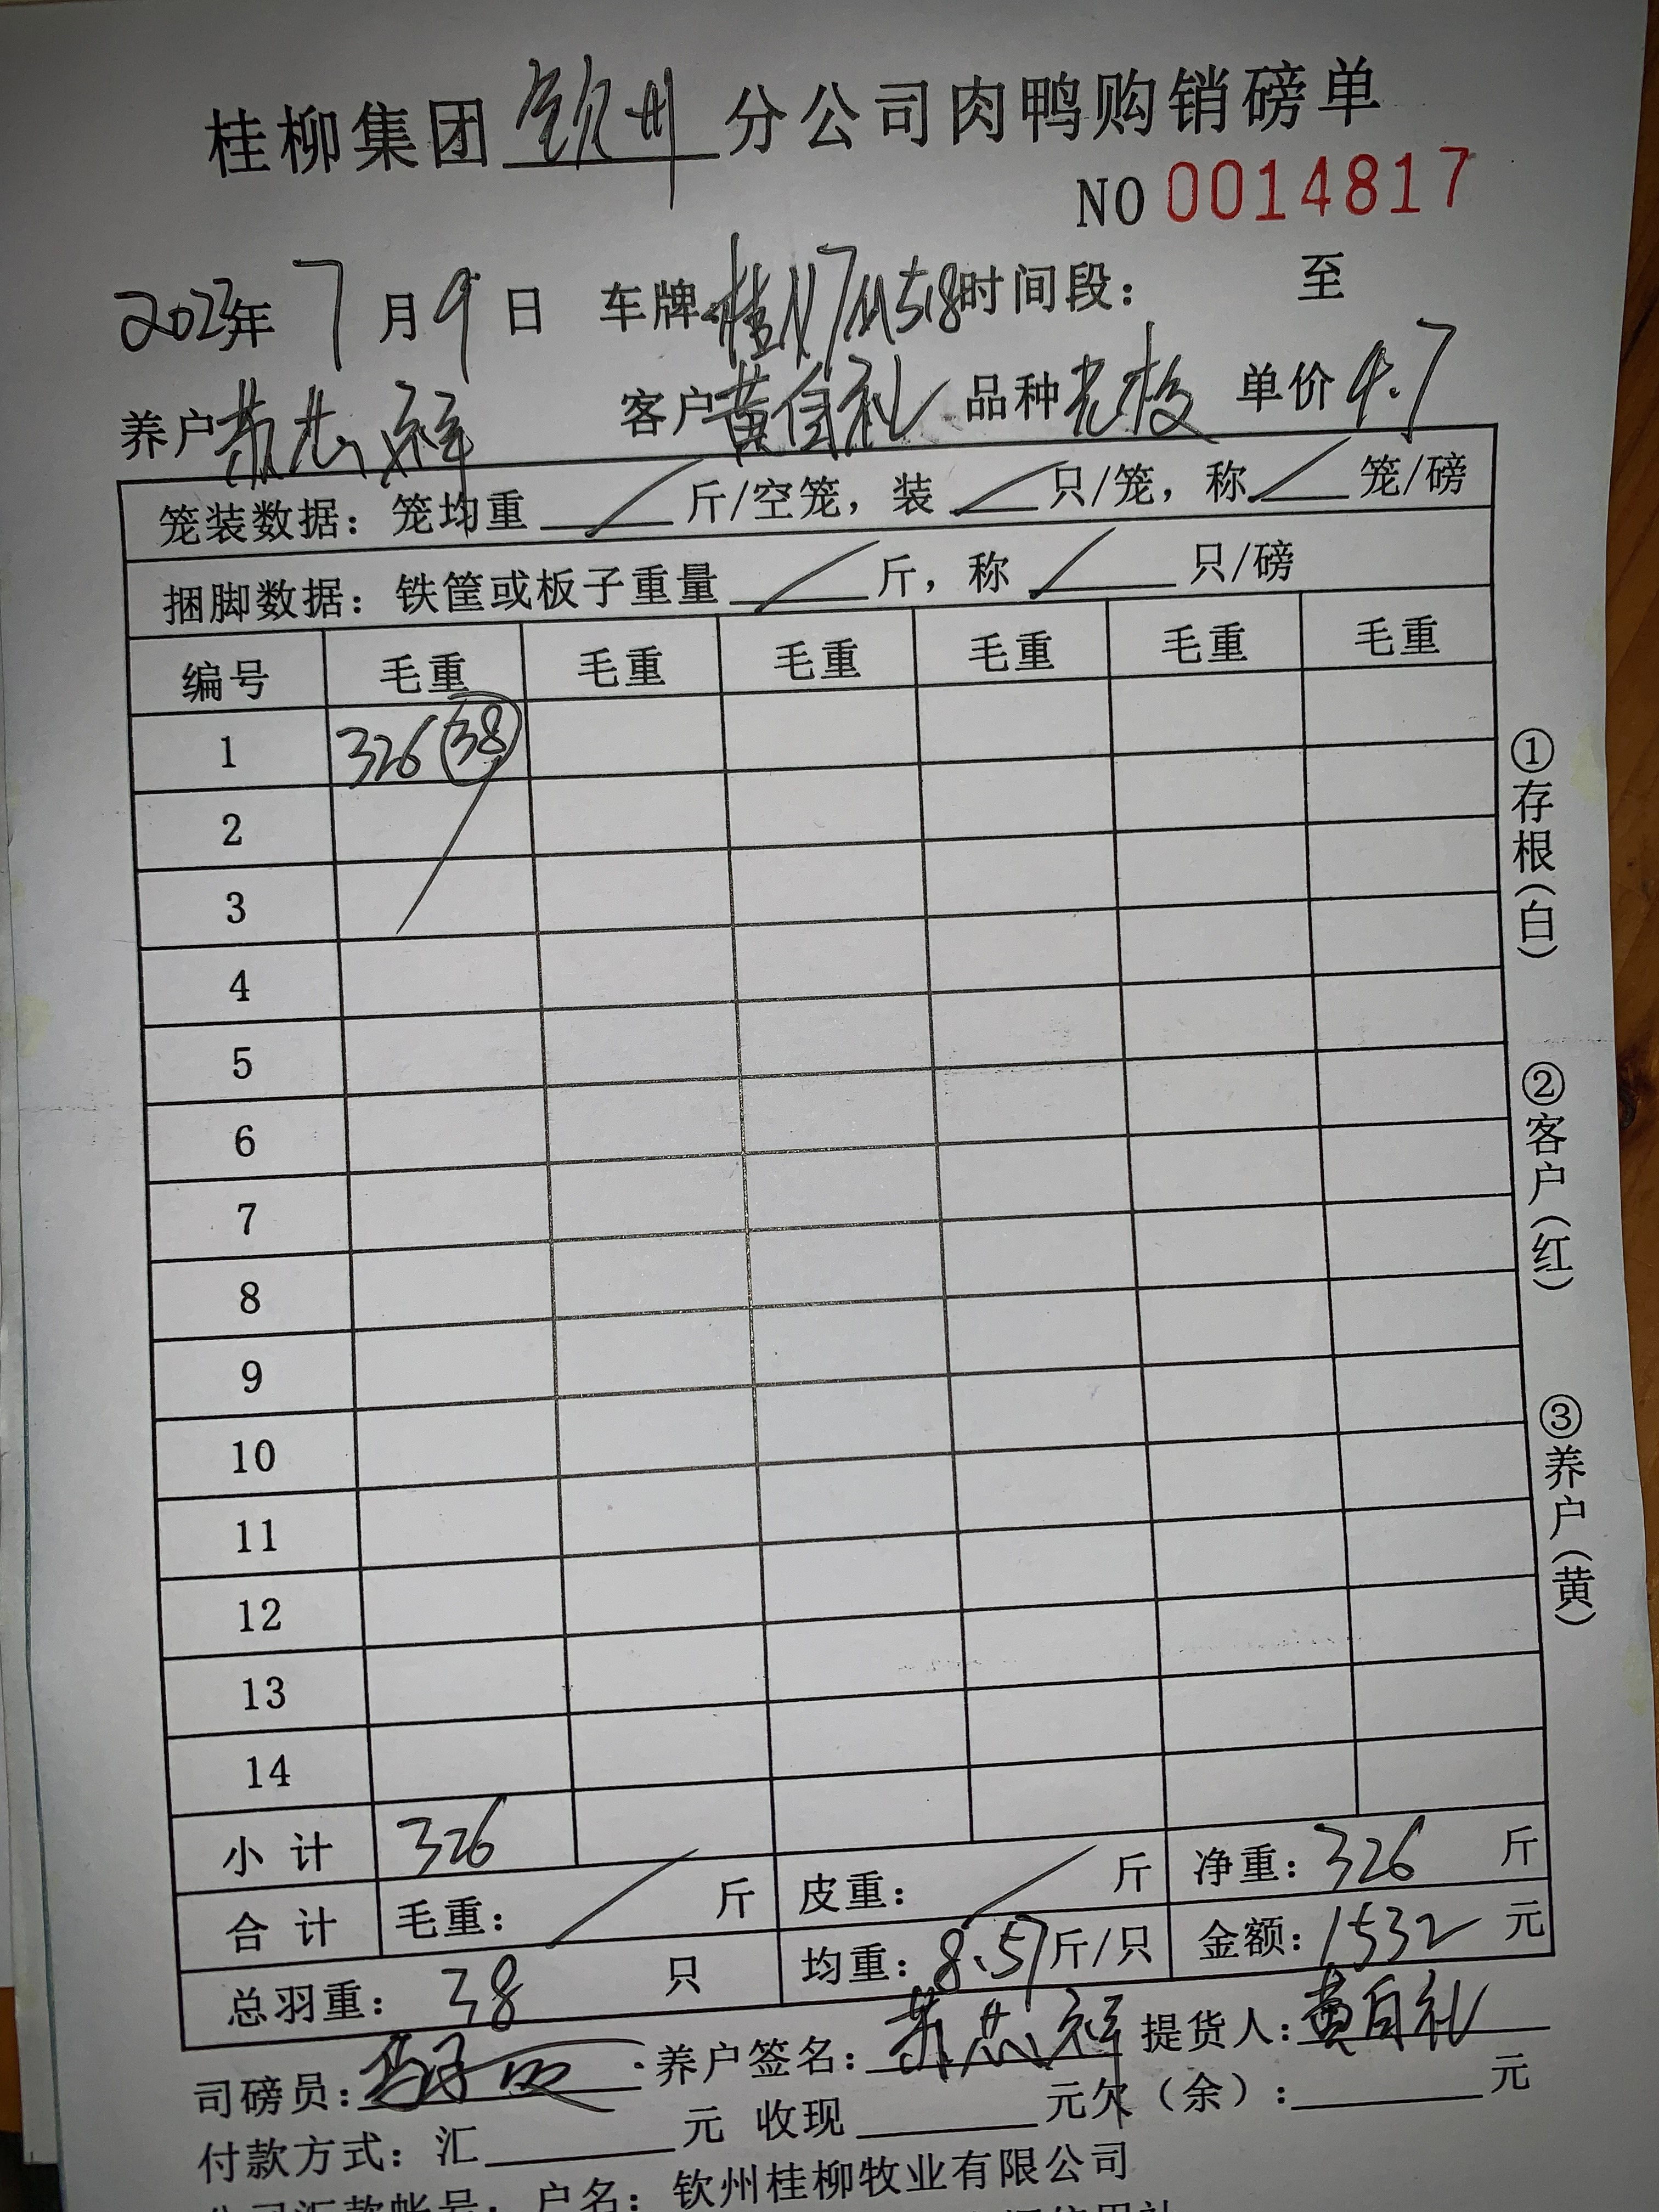 桂柳集团 钦州 分公司肉鸭购销磅单
NO 0014817
2023年 7 月 9 日 车牌 桂N7M518 时间段： 至
养户 客户 黄自礼 品种 单价 4.7
笼装数据：笼均重 / 斤/空笼，装 / 只/笼，称 / 笼/磅
捆脚数据：铁筐或板子重量 / 斤，称 / 只/磅
编号 毛重 毛重 毛重 毛重 毛重 毛重
1 326 (38)
2
3
4
5
6
7
8
9
10
11
12
13
14
小计 326
合计 毛重： / 斤 皮重： / 斤 净重：326 斤
总羽重： 38 只 均重：8.57斤/只 金额：1532 元
司磅员： 养户签名： 提货人：黄自礼
付款方式：汇 元 收现 元欠（余）： 元
公司汇款帐号：户名：钦州桂柳牧业有限公司
①存根（白）
②客户（红）
③养户（黄）